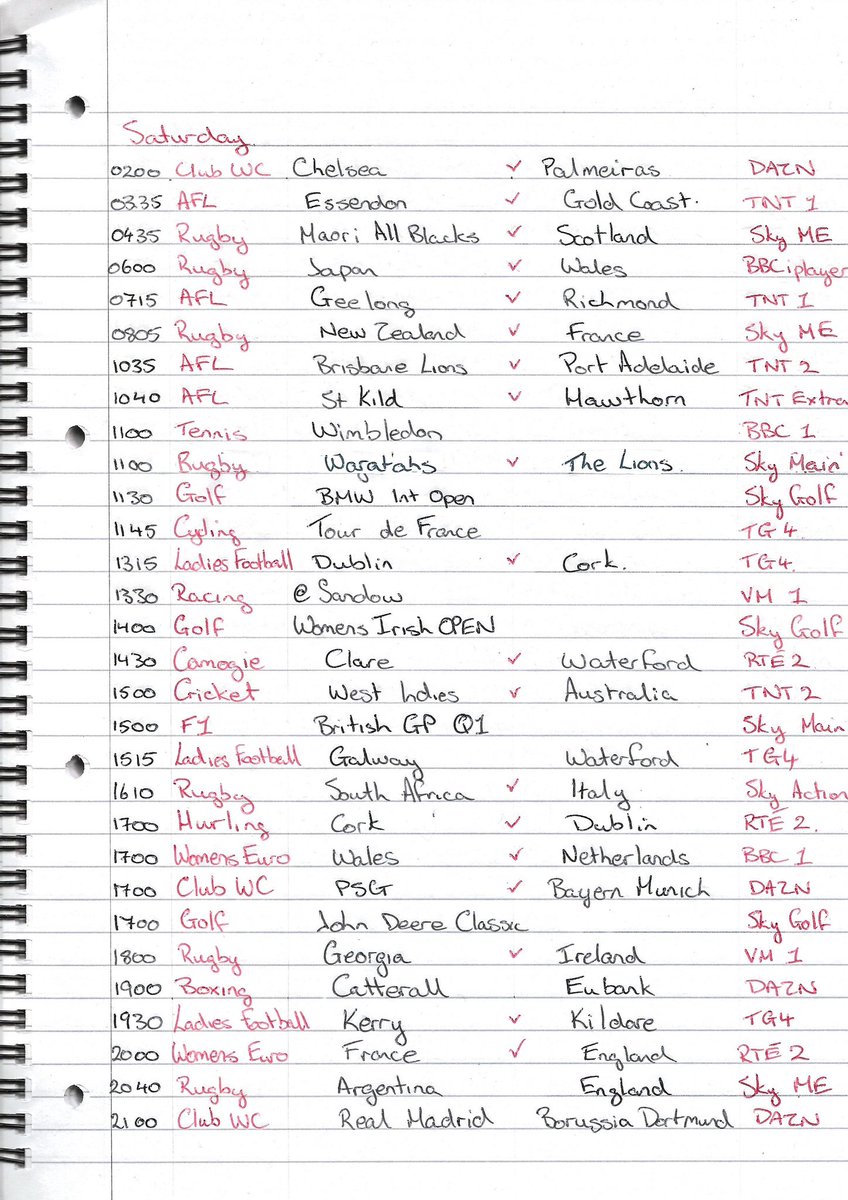 Saturday
0200 Club WC Chelsea v Palmeiras DAZN
0335 AFL Essendon v Gold Coast. TNT 1
0435 Rugby Maori All Blacks v Scotland Sky ME
0600 Rugby Japan v Wales BBC iplayer
0715 AFL Geelong v Richmond TNT 1
0805 Rugby New Zealand v France Sky ME
1035 AFL Brisbane Lions v Port Adelaide TNT 2
1040 AFL St Kild v Hawthorn TNT Extra
1100 Tennis Wimbledon BBC 1
1100 Rugby Waratahs v The Lions. Sky Main
1130 Golf BMW Int Open Sky Golf
1145 Cycling Tour de France TG4
1315 Ladies Football Dublin v Cork. TG4
1330 Racing @ Sandow VM 1
1400 Golf Womens Irish OPEN Sky Golf
1430 Camogie Clare v Waterford RTÉ 2
1500 Cricket West Indies v Australia TNT 2
1500 F1 British GP Q1 Sky Main
1515 Ladies Football Galway Waterford TG4
1610 Rugby South Africa v Italy Sky Action
1700 Hurling Cork v Dublin RTÉ 2.
1700 Womens Euro Wales v Netherlands BBC 1
1700 Club WC PSG v Bayern Munich DAZN
1700 Golf John Deere Classic Sky Golf
1800 Rugby Georgia v Ireland VM 1
1900 Boxing Catterall Eubank DAZN
1930 Ladies Football Kerry v Kildare TG4
2000 Womens Euro France v England RTÉ 2
2040 Rugby Argentina England Sky ME
2100 Club WC Real Madrid Borussia Dortmund DAZN